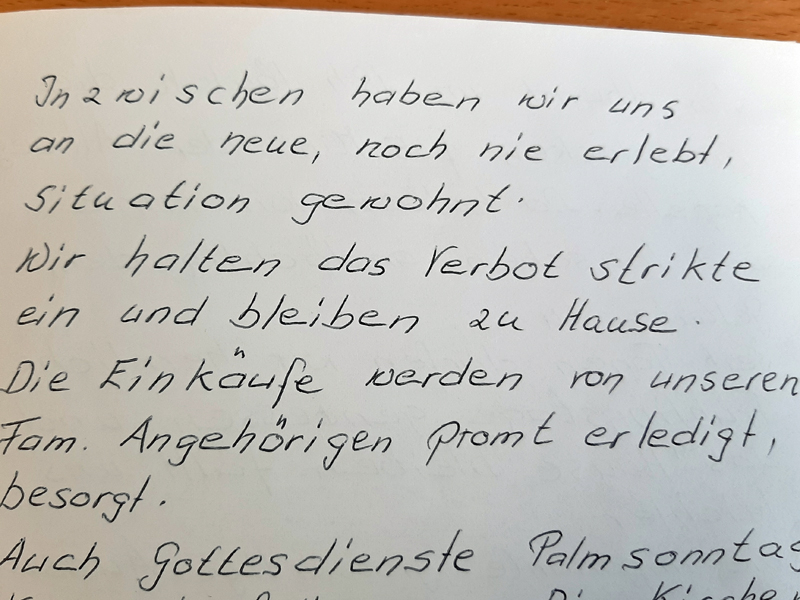 Inzwischen haben wir uns
an die neue, noch nie erlebt,
Situation gewohnt.
Wir halten das Verbot strikte
ein und bleiben zu Hause.
Die Einkäufe werden von unseren
Fam. Angehörigen promt erledigt,
besorgt.
Auch Gottesdienste Palmsonntag